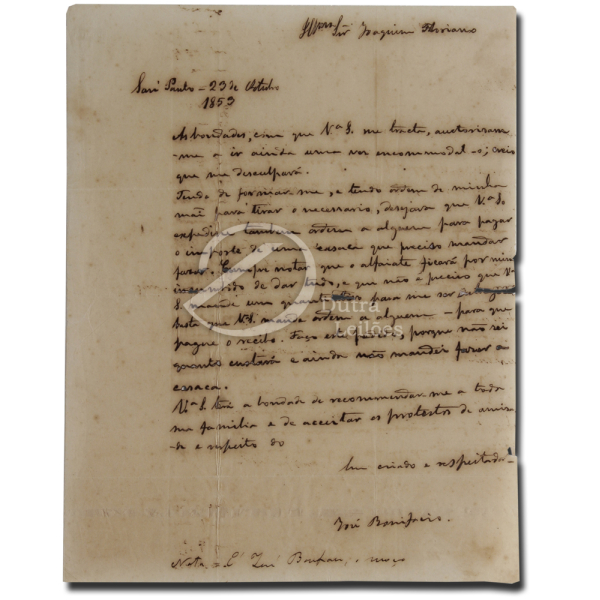 Illmo Snr Joaquim Floriano
San Paulo - 23 de Outubro
1853
As bondades, com que Vª S. me tracta, auctorisam
-me a ir ainda uma vez encommodal-o; creio
que me desculpará.
Tendo de formar-me, e tendo ordem de minha
mãi para tirar o necessario, desejava que Vª S.
expedisse tambem ordem a alguem para pagar
o importe de uma casaca que preciso mandar
fazer. Cumpre notar que o alfaiate ficará por mim
de dar tudo, e que não é preciso que Vª
S. mande uma quantia para me ser
basta que Vª S. mande ordem a alguem - para que
pague o recibo. Faço este pedido, porque não sei
quanto custará e ainda não mandei fazer a
casaca.
Vª S. terá a bondade de recommendar-me a toda
sua familia e de acceitar os protestos de amisa
-de e respeito do
seu criado e respeitador
José Bonifacio.
Nota, é José Bonifacio, o moço
Dutra
Leilões